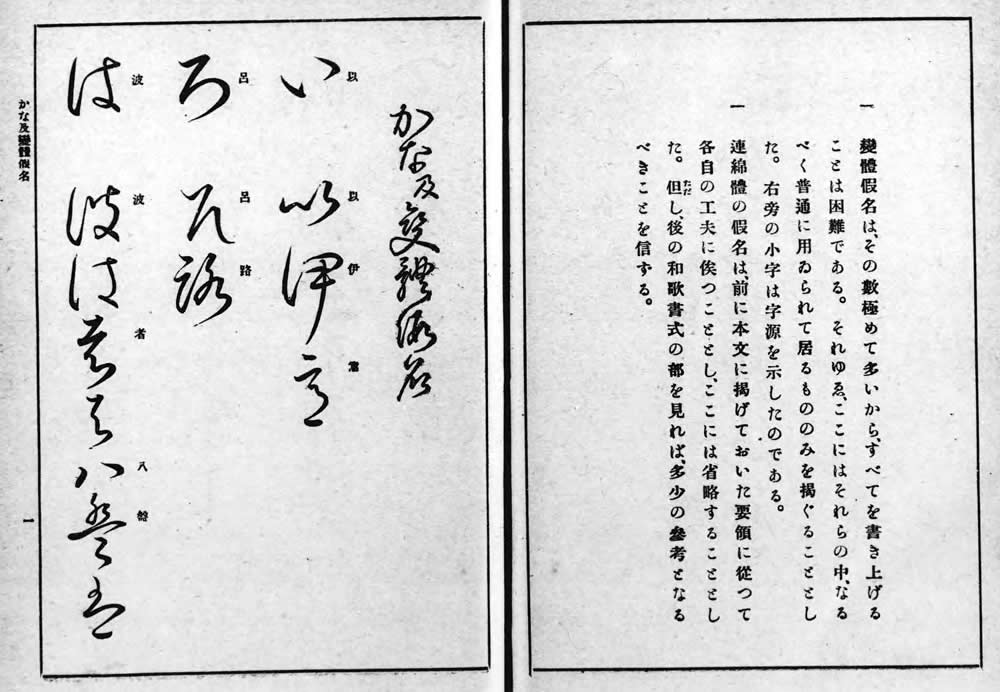 一 變體假名は、その數極めて多いから、すべてを書き上げる
ことは困難である。それゆゑ、ここにはそれらの中、なる
べく普通に用ゐられて居るもののみを揭ぐることとし
た。右旁の小字は字源を示したのである。
一 連綿體の假名は、前に本文に揭げておいた要領に從つて
各自の工夫に俟つこととし、ここには省略することとし
た。但し、後の和歌書式の部を見れば、多少の參考となる
ただ
べきことを信ずる。
かな及變體假名
い 以
以 以 伊 伊
ろ 呂
呂 呂 路 路
は 波
波 波 者 八 八
かな及變體假名
一